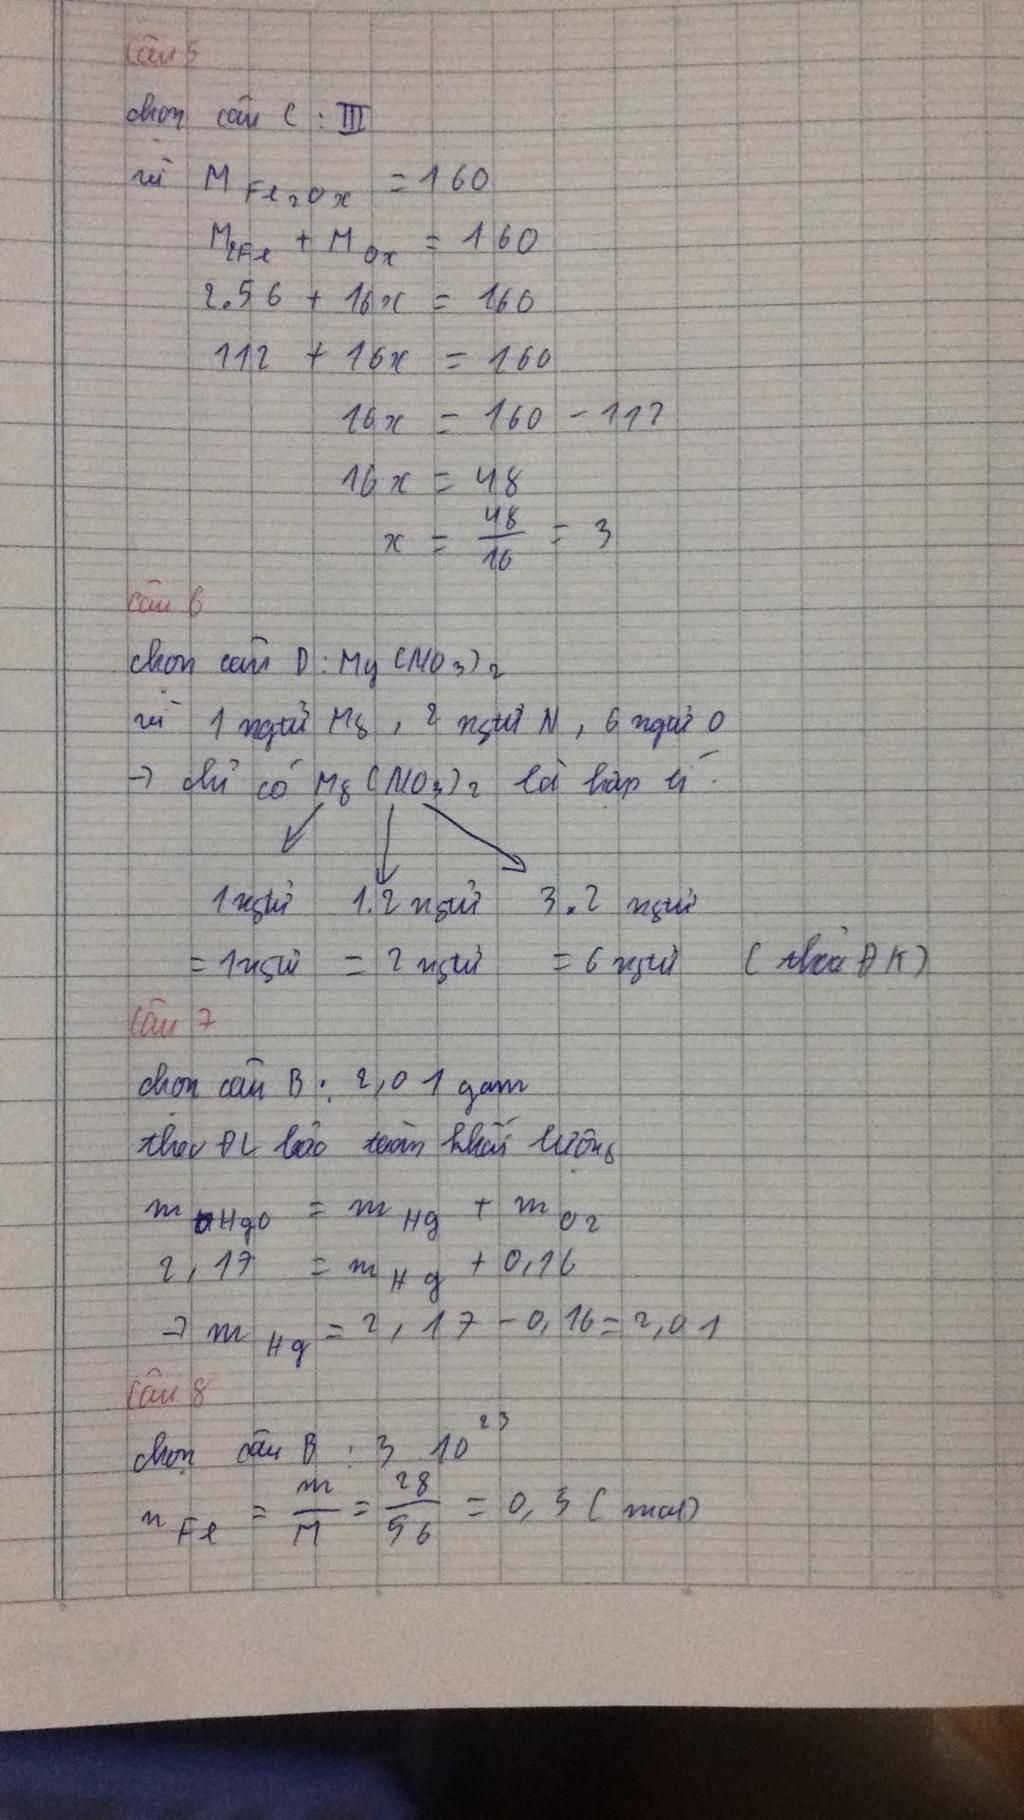 Câu 5
chọn câu C : III
vì M Fe2Ox = 160
M2Fe + M Ox = 160
2.56 + 16x = 160
112 + 16x = 160
16x = 160 - 112
16x = 48
x = 48/16 = 3
Câu 6
chọn câu D : Mg(NO3)2
vì 1 ngtử Mg, 2 ngtử N, 6 ngtử O
→ chỉ có Mg(NO3)2 là hợp lí
1 ngtử 1.2 ngtử 3.2 ngtử
= 1 ngtử = 2 ngtử = 6 ngtử (thỏa ĐK)
Câu 7
chọn câu B : 2,01 gam
theo ĐL bảo toàn khối lượng
m HgO = m Hg + m O2
2,17 = m Hg + 0,16
→ m Hg = 2,17 - 0,16 = 2,01
Câu 8
chọn câu B : 3 10^23
n Fe = m/M = 28/56 = 0,5 (mol)